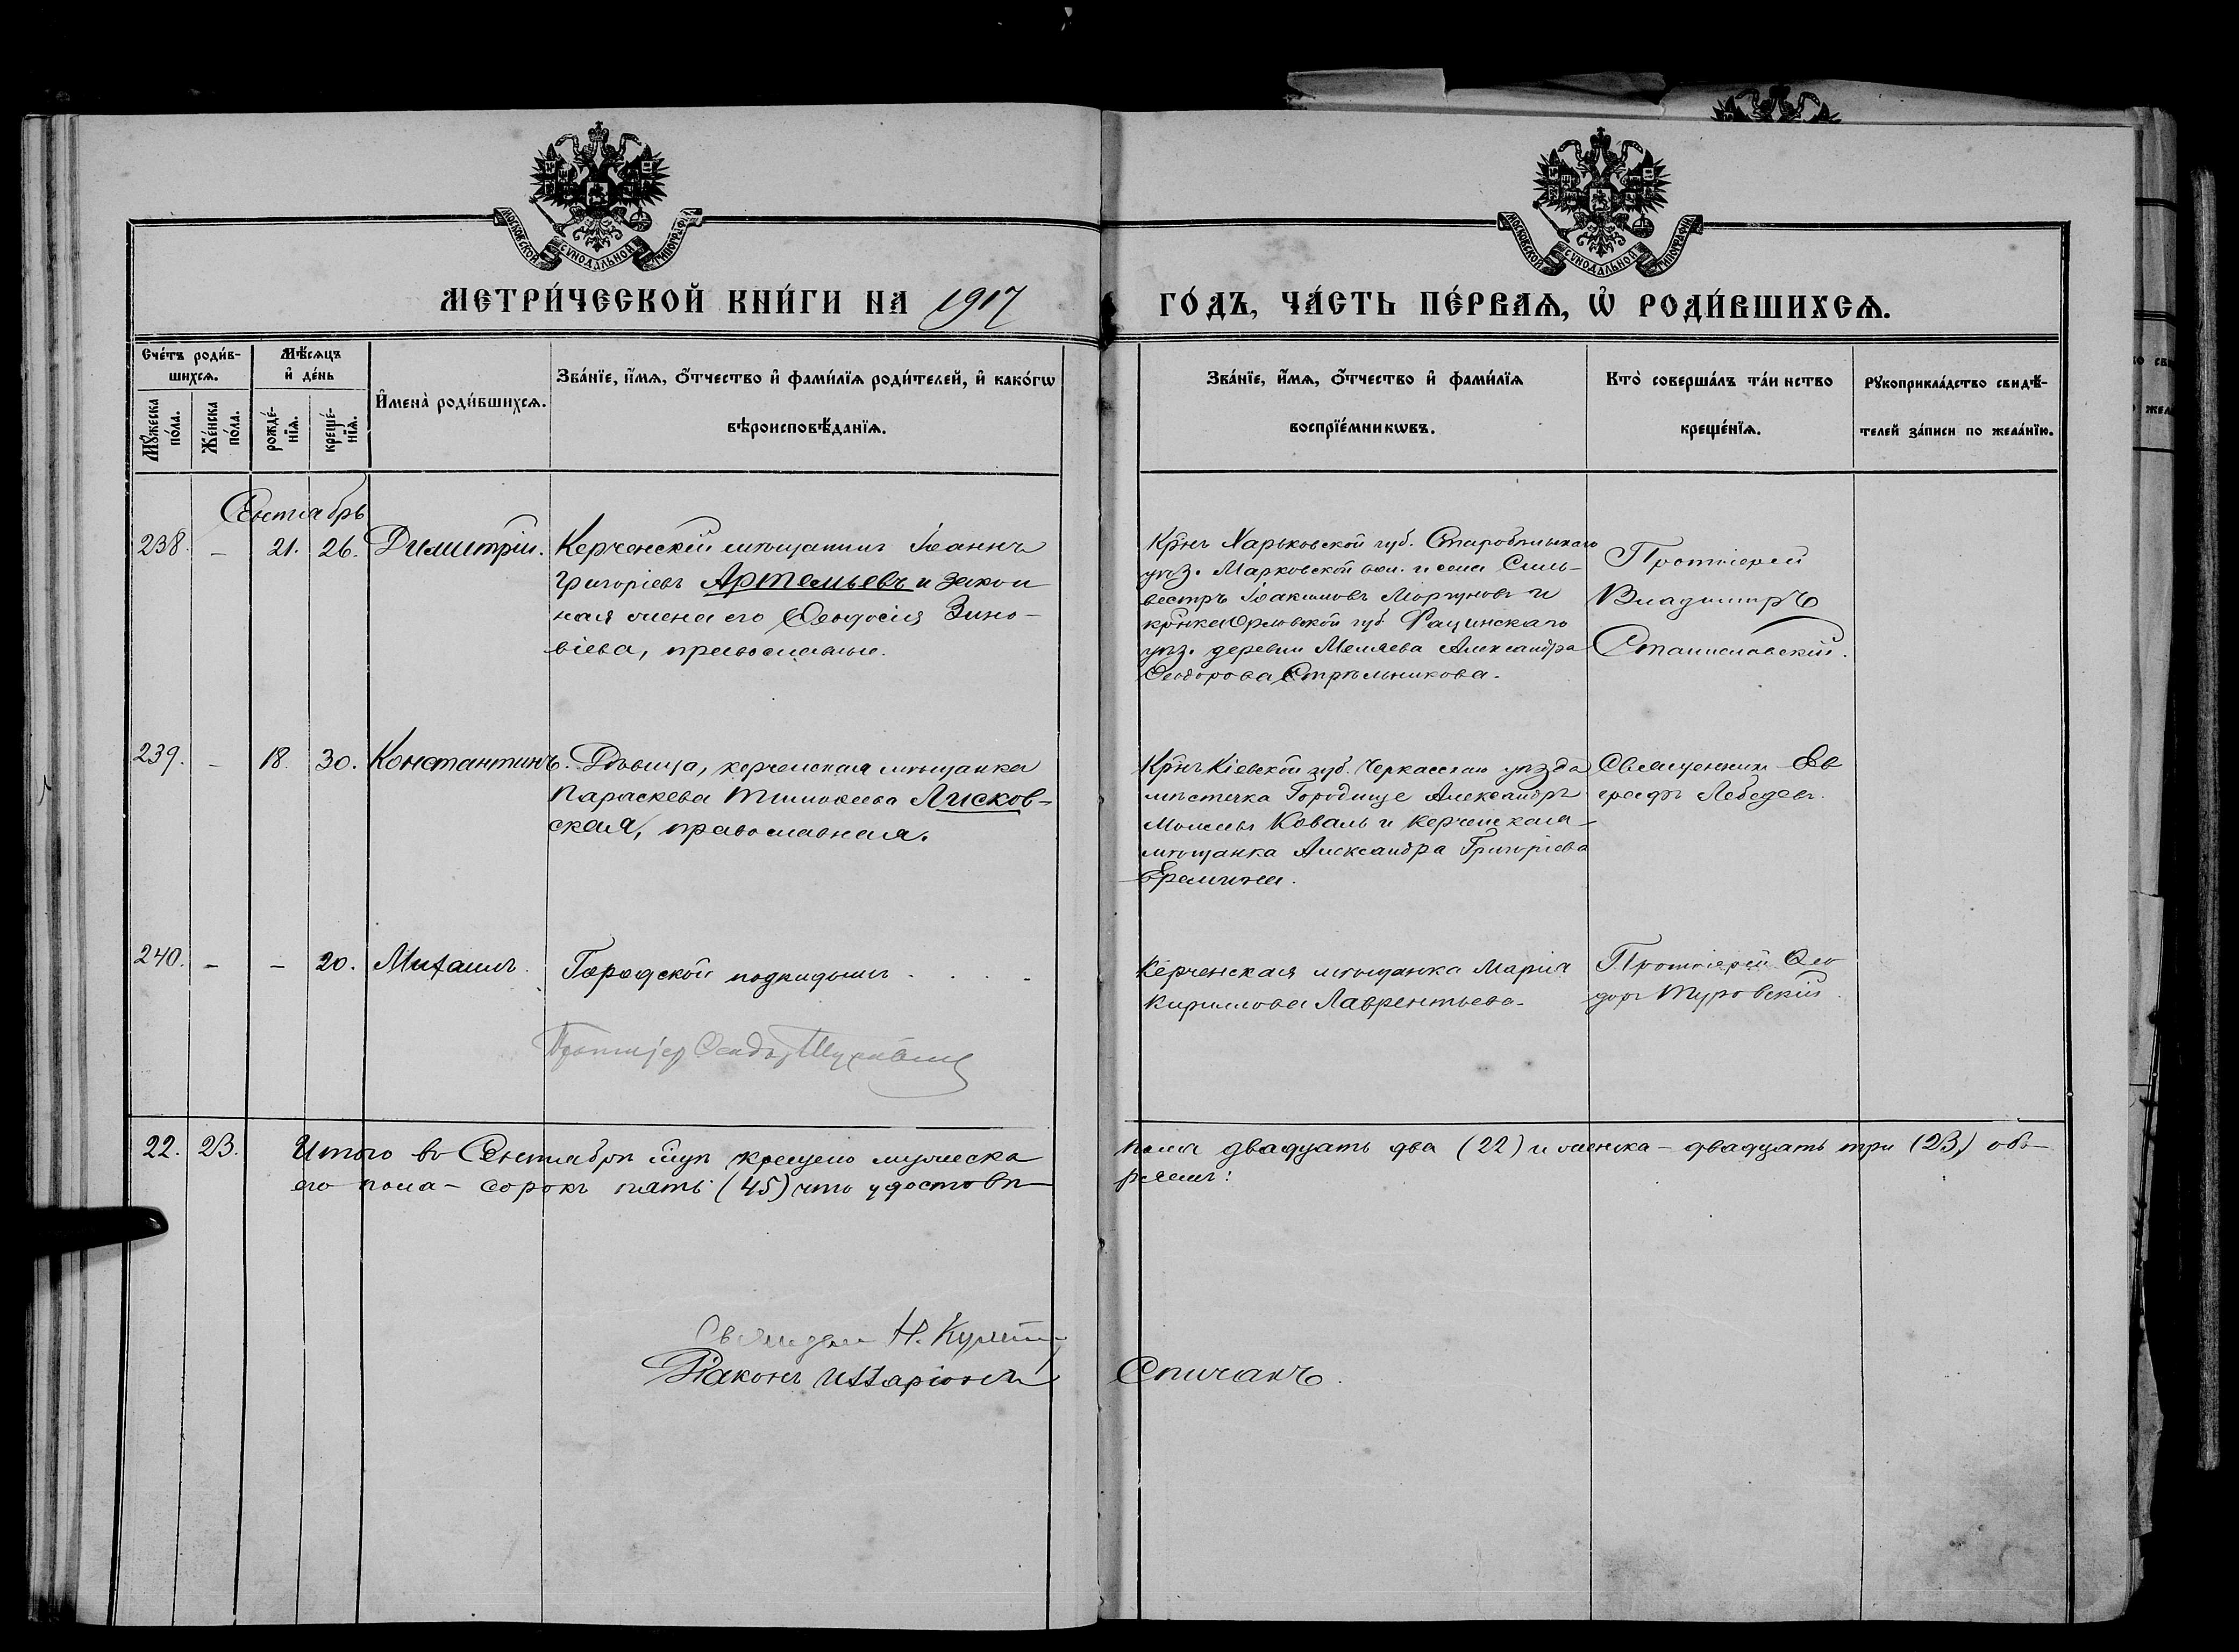 МОСКОВСКОЙ СѴНОДАЛЬНОЙ ТИПОГРАФІИ
МОСКОВСКОЙ СѴНОДАЛЬНОЙ ТИПОГРАФІИ
МЕТРИ́ЧЕСКОЙ КНИ́ГИ НА 1917
ГО́ДЪ, ЧА́СТЬ ПЕ́РВАѦ, Ѡ҆ РОДИ́ВШИХСѦ.
Сче́тъ роди́в-
шихсѧ.
Мꙋ́жеска по́ла.
Же́нска по́ла.
Мѣ́сѧцъ
и҆ де́нь
рожде́-
нїѧ.
креще́-
нїѧ.
И҆мена̀ роди́вшихсѧ.
Зва́нїе, и҆́мѧ, ѻ҆́тчество и҆ фами́лїѧ роди́телей, и҆ како́гѡ
вѣроисповѣ́данїѧ.
Зва́нїе, и҆́мѧ, ѻ҆́тчество и҆ фами́лїѧ
воспрїе́мникѡвъ.
Кто̀ соверша́лъ та́инство
креще́нїѧ.
Рꙋкоприкла́дство свидѣ́-
телей за́писи по жела́нїю.
Сентябрь
238. – 21. 26. Димитрій. Керченскій мѣщанинъ Іоаннъ
Григоріевъ Артемьевъ и закон
ная жена его Ѳеодосія Зино-
віева, православные.
Крнъ Харьковской губ. Старобѣльскаго
уѣз. Марковской вол. и села Силь-
вестръ Іоакимовъ Моргуновъ и
крнка Орловской губ.
уѣз. деревни Александра
Ѳеодорова Стрѣльникова.
Протоіерей
Владиміръ
Станиславскій.
239. – 18. 30. Константинъ. Дѣвица, керченская мѣщанка
Параскева Тимоѳеева Лисков-
ская, православная.
Крнъ Кіевской губ. Черкасскаго уѣзда
мѣстечка Городище Александръ
Моисеевъ Коваль и керченская
мѣщанка Александра Григоріева
Еремина.
Священник Ев
графъ Лебедевъ.
240. – – 20. Михаилъ. Городской подкидышъ . . . -
Керченская мѣщанка Марія
Кириллова Лаврентьева.
Протоіерей Ѳео
доръ Туровскій.
22. 23. Итого въ Сентябрѣ м-цѣ крещено мужеска
пола двадцать два (22) и женска – двадцать три (23) обо-
его пола – сорокъ пять (45) что удостовѣ-
ряемъ:
Н.
Діаконъ Илларіонъ
Спичакъ.